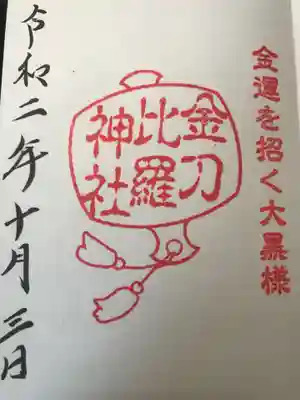 金運を招く大黒様
金刀
比羅
神社
令和二年十月三日